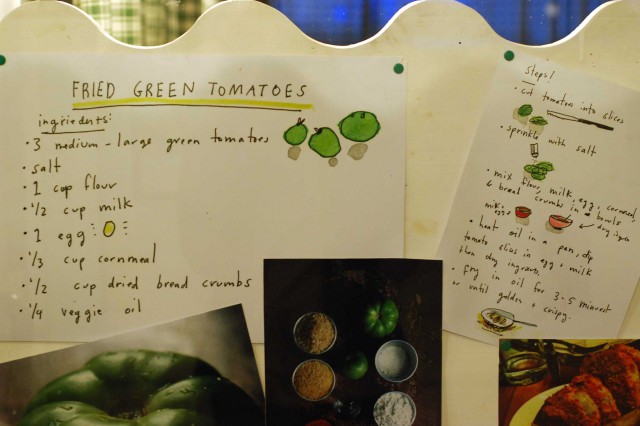 FRIED GREEN TOMATOES
ingriedents:
• 3 medium - large green tomatoes
• salt
• 1 cup flour
• 1/2 cup milk
• 1 egg
• 1/3 cup cornmeal
• 1/2 cup dried bread crumbs
• 1/4 veggie oil
Steps!
• cut tomatoes into slices
• sprinkle with salt
• mix flour, milk, egg, cornmeal,
& bread crumbs in bowls
milk + egg
dry ingred.
• heat oil in a pan, dip
tomato slices in egg + milk
then dry ingreds.
• fry in oil for 3-5 minuest
or until golden + crispy.